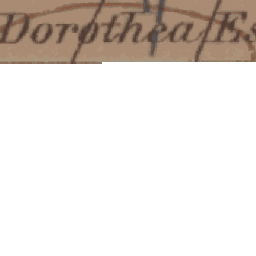 Dorothea Es